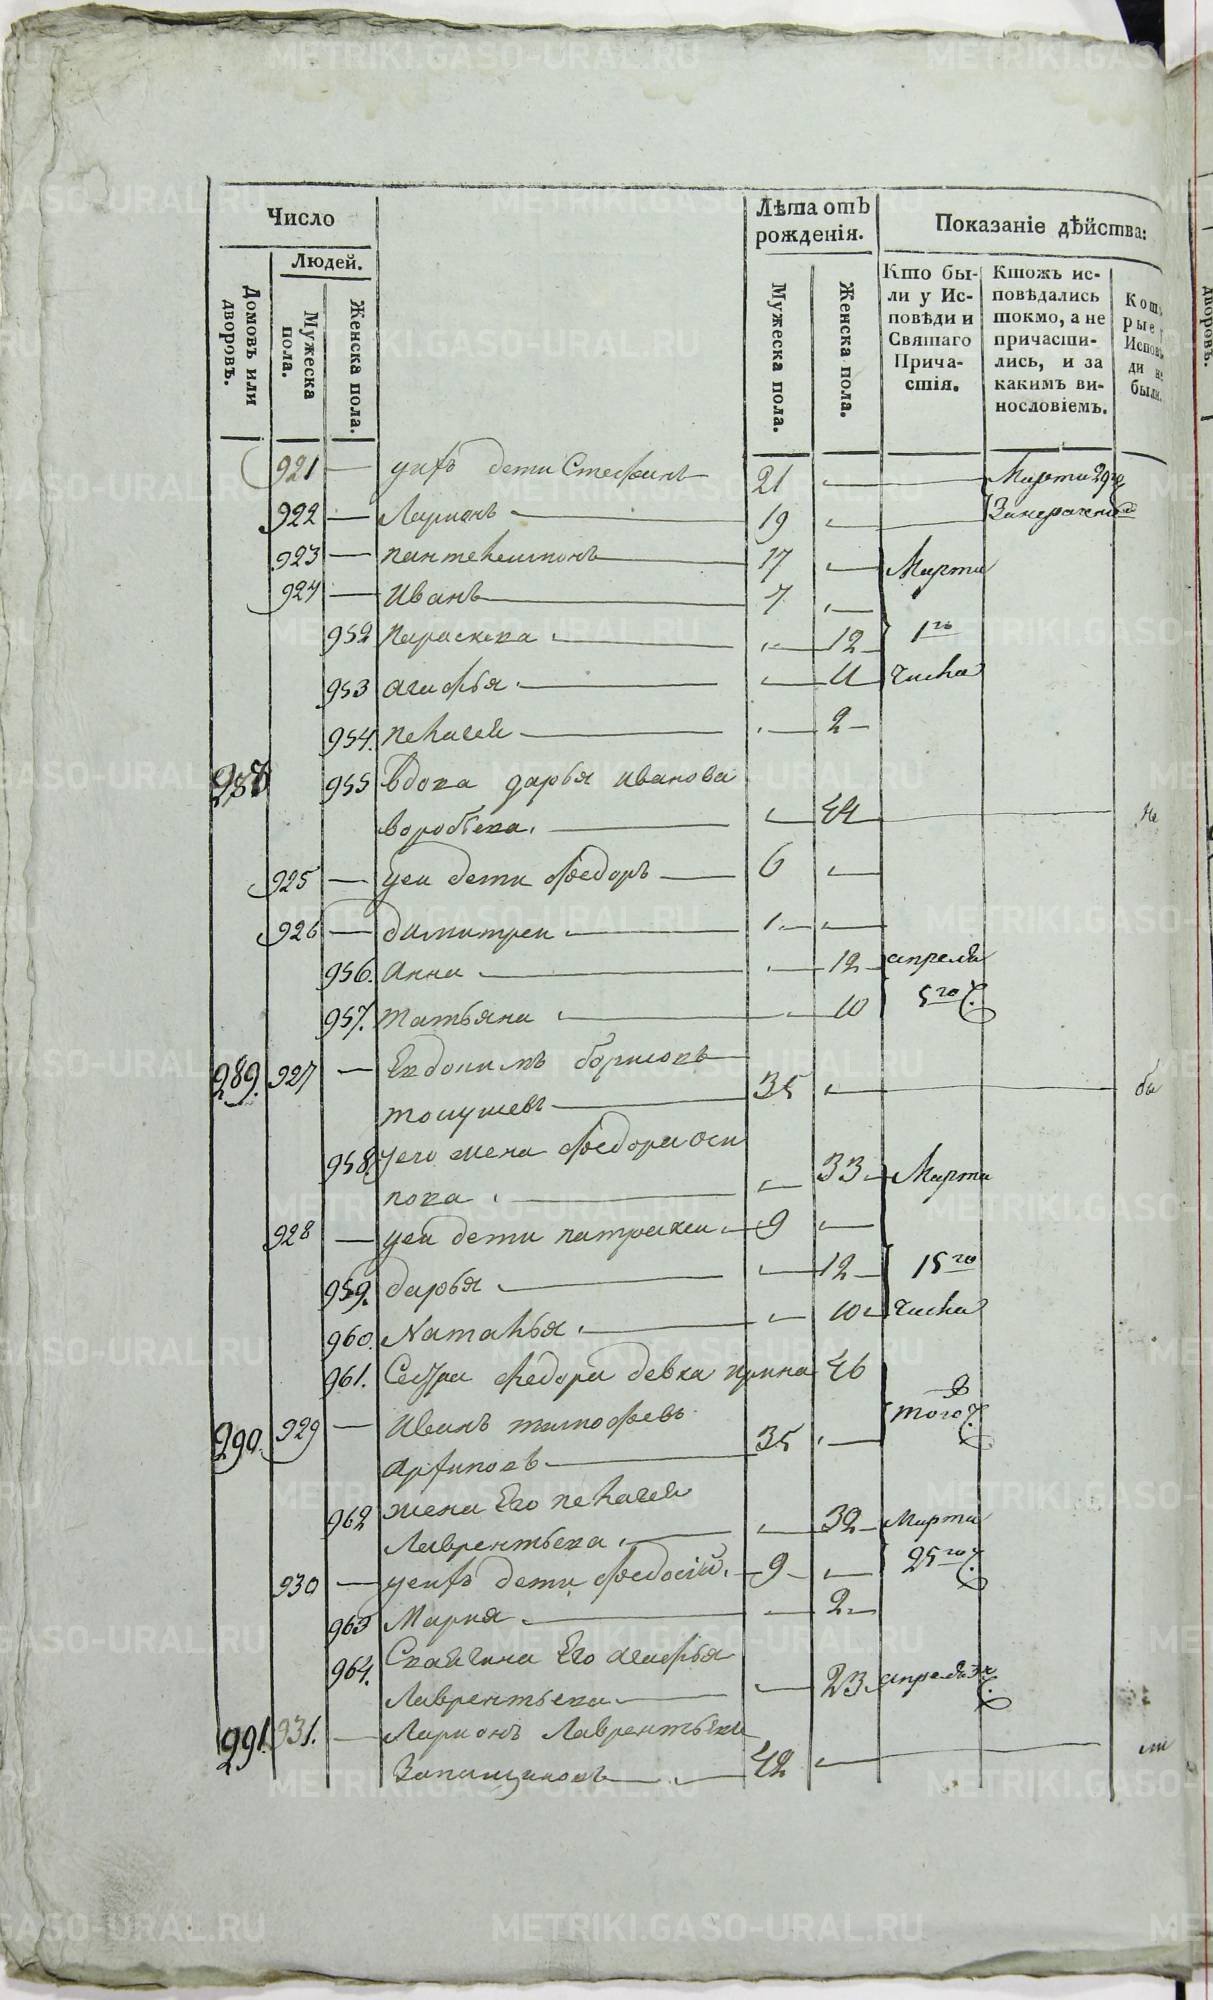 Число
Лѣта отъ рожденія.
Показаніе дѣйства:
Людей.
Домовъ или дворовъ.
Мужеска пола.
Женска пола.
Мужеска пола.
Женска пола.
Кто были у Исповѣди и Святаго Причастія.
Ктожъ исповѣдались токмо, а не причастились, и за какимъ винословіемъ.
Исповѣди не были.
921 — унхъ дети Стефанъ 21 — Марта 29го
922 — Ларионъ 19
923 — пантелеимонъ 17 — Марта
924 — Иванъ 7
952 Параскева 12 1го
953 агафья 11 числа
954. пелагея 2
288 955 вдова дарья иванова
воробьева. 44 не
925 — уеи дети Феодоръ 6
926 — димитреи 1
956. Анна 12 апреля
957. татьяна 10 5го ч.
289. 927 — Евдокимъ борисовъ
35 бы
958. уего жена Феодора оси
пова 33 Марта
928 — уеи дети патрикеи 9
959. дарья 12 15го
960. Наталья 10 числа
961. Сестра Федора девка ирина 46
290. 929 — Иванъ тимофеевъ 35 того ч.
Архиповъ
962 жена Его пелагея
Лаврентьева 32 Марта
930 — уенхъ дети Феодосiй 9 25го ч.
963 Мария 2
964. Его агафья
Лаврентьева 23 апреля 3 ч.
291. 931. — Ларионъ Лаврентьевъ
42 ли
METRIKI.GASO-URAL.RU